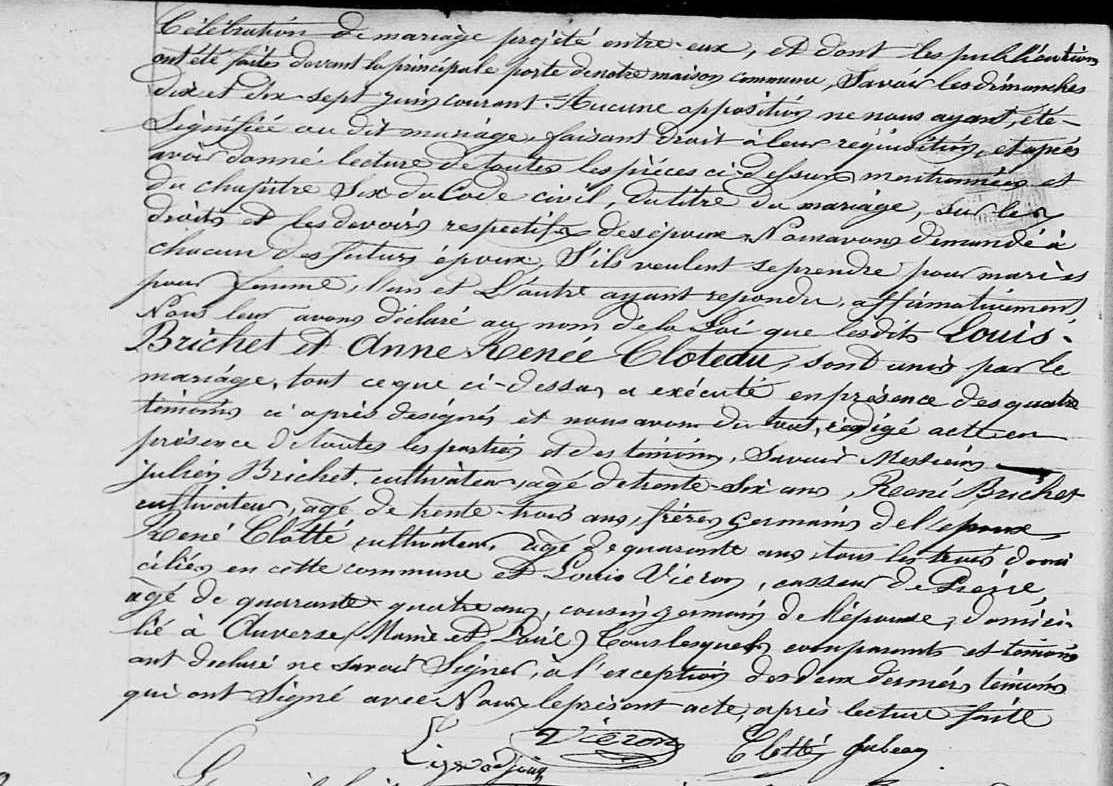 Célébration de mariage projeté entre-eux, et dont les publications
ont été faites devant la principale porte de notre maison commune, Savoir les dimanches
dix et dix-sept juin courant. Aucune opposition ne nous ayant été
Signifiée au dit mariage, faisant droit à leur réquisition, et après
avoir donné lecture de toutes les pièces ci-dessus mentionnées et
du chapitre Six du Code civil, du titre du mariage, sur les
droits et les devoirs respectifs des époux, Nous avons demandé à
chacun des futurs époux, S'ils veulent se prendre pour mari et
pour femme, l'un et L'autre ayant repondu, affirmativement
Nous leur avons déclaré au nom de la Loi que lesdits Louis
Brichet et Anne Renée Cloteau, sont unis par le
mariage, tout ce que ci-dessus a exécuté en présence des quatre
témoins ci après designés et nous avons du tout, rédigé acte en
présence de toutes les parties et des témoins, Savoir Messieurs
Julien Brichet, cultivateur, agé de trente-Six ans, René Brichet
cultivateur, agé de trente-trois ans, frères germains de l'epoux,
René Clotté, cultivateur, agé de quarante ans tous les trois domi
ciliés en cette commune et Louis Vieron, casseur de Pierre,
agé de quarante quatre ans, cousin germain de l'épouse, domici-
lié à Auverse (Maine et Loire) Tous lesquels comparants et témoins
ont declaré ne savoir Signer, à l'exception des deux derniers témoins
qui ont Signé avec Nous le présent acte, après lecture faite
Vieron Clotté